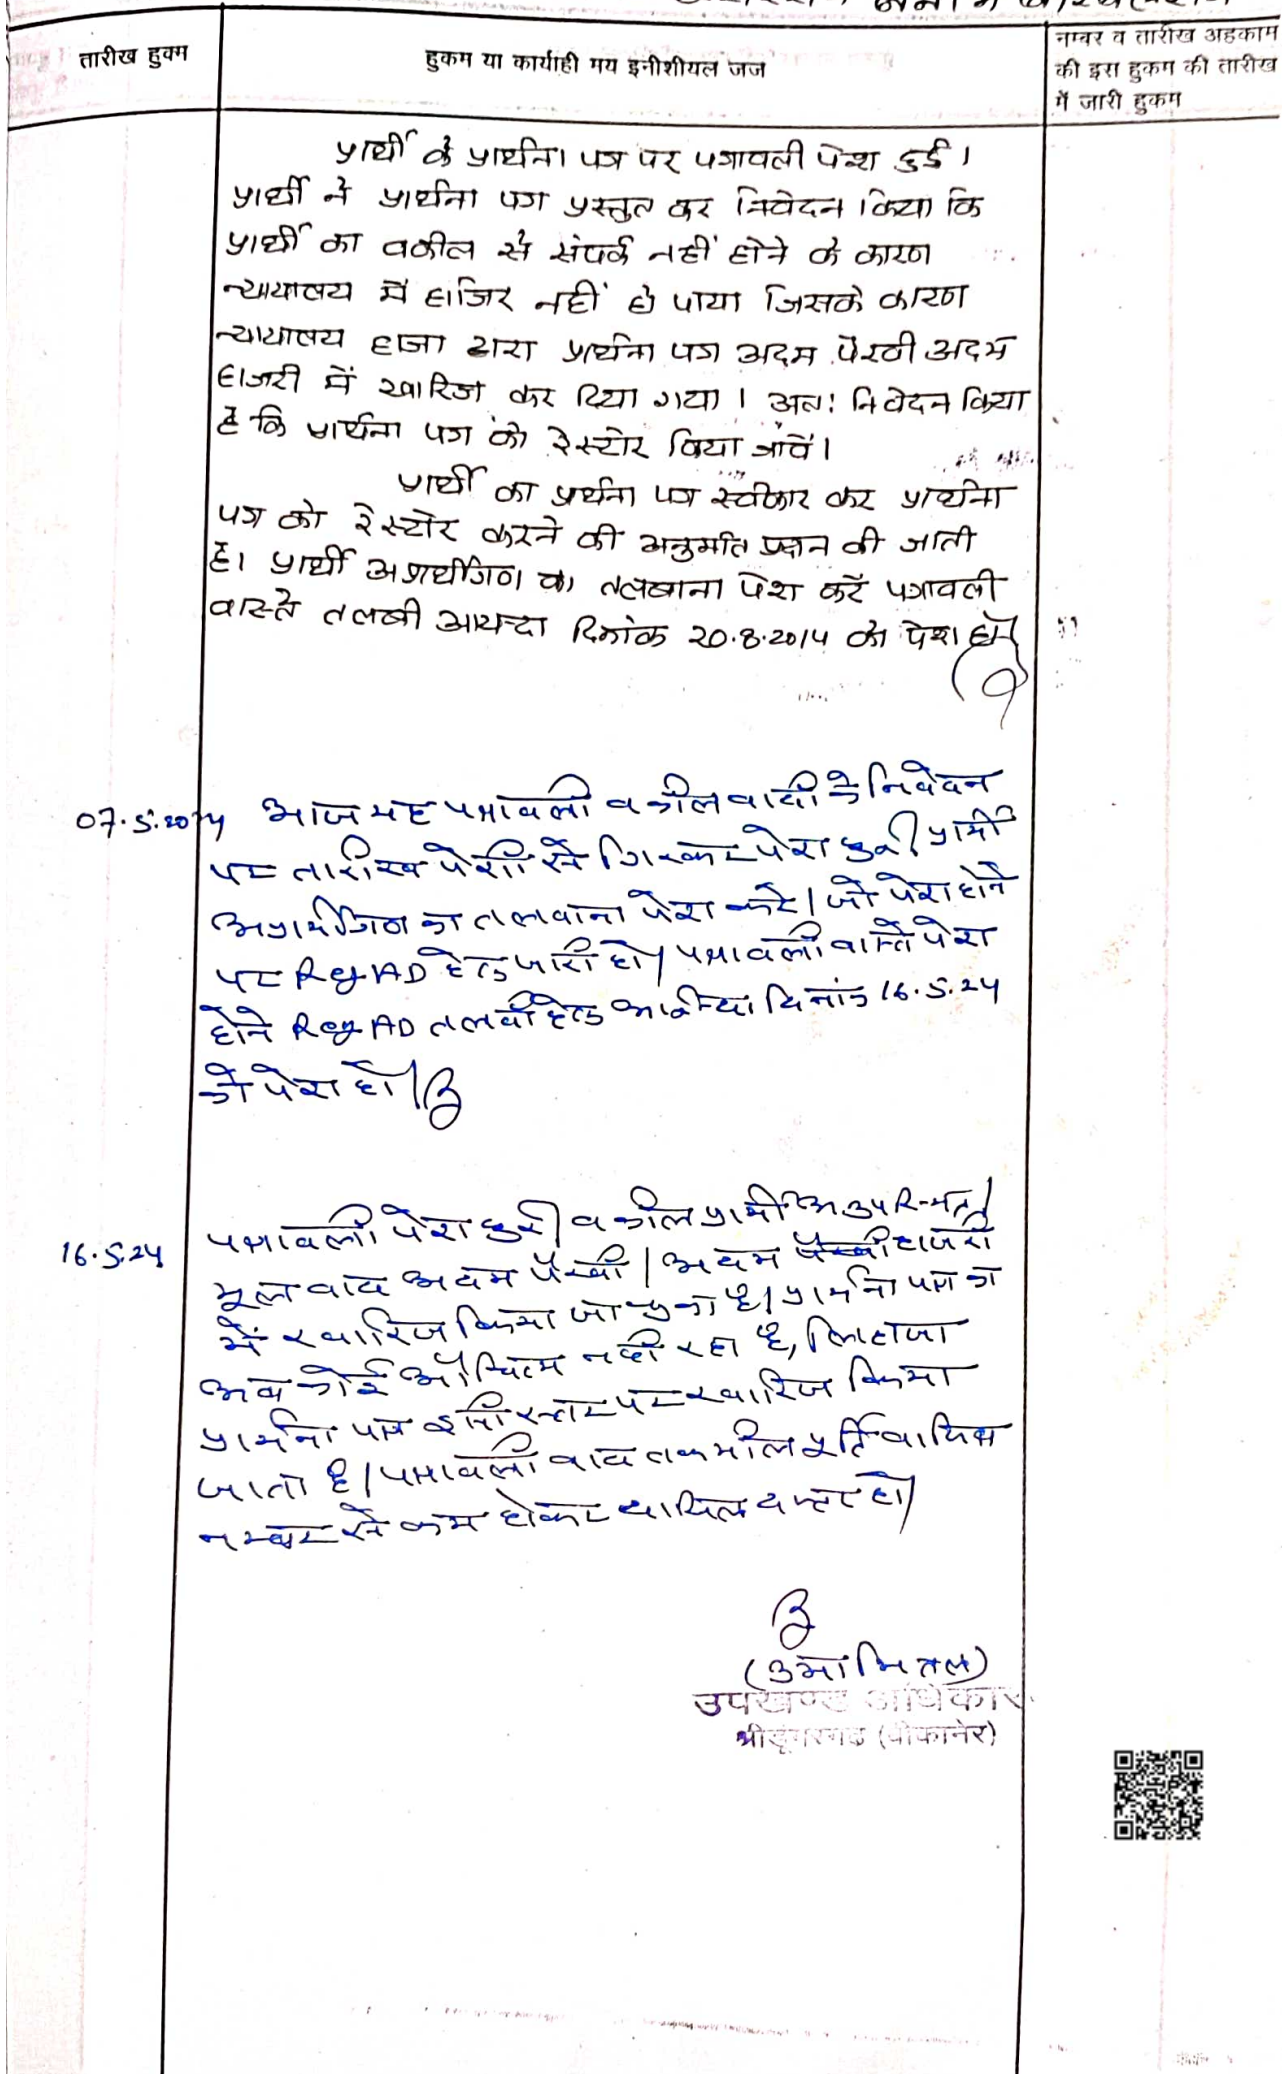 तारीख हुक्म
हुकम या कार्याही मय इनीशीयल जज
नम्बर व तारीख अहकाम
की इस हुकम की तारीख
में जारी हुकम
प्रार्थी के प्रार्थना पत्र पर पत्रावली पेश हुई।
प्रार्थी ने प्रार्थना पत्र प्रस्तुत कर निवेदन किया कि
प्रार्थी का वकील से संपर्क नहीं होने के कारण
न्यायालय में हाजिर नहीं हो पाया जिसके कारण
न्यायालय हाजा द्वारा प्रार्थना पत्र अदम पैरवी अदम
हाजरी में खारिज कर दिया गया। अतः निवेदन किया
है कि प्रार्थना पत्र को रेस्टोर किया जावें।
प्रार्थी का प्रार्थना पत्र स्वीकार कर प्रार्थना
पत्र को रेस्टोर करने की अनुमति प्रदान की जाती
है। प्रार्थी अप्रार्थीगण का तलबाना पेश करें पत्रावली
वास्ते तलबी आयन्दा दिनांक 20.8.2014 को पेश हों
07.5.2024 आज यह पत्रावली वकील वादी के निवेदन
पर तारीख पेशी से निकालकर पेश हुई। प्रार्थी
अप्रार्थीगण का तलवाना पेश करे। जो पेश होने
पर Reg AD हेतु जारी हो। पत्रावली वास्ते पेश
होने Reg AD तलबी हेतु आईन्दा दिनांक 16.5.24
को पेश हो।
16.5.24 पत्रावली पेश हुई। वकील प्रार्थी उपस्थित।
मूल वाद अदम पैरवी। अदम हाजरी
में खारिज किया जा चुका है। प्रार्थना पत्र का
अब कोई औचित्य नही रहा है, लिहाजा
प्रार्थना पत्र इसी स्तर पर खारिज किया
जाता है। पत्रावली बाद तकमील पूर्ति वापिस
नम्बर से कम होकर दाखिल दफ्तर हो।
(उमा मित्तल)
उपखण्ड अधिकारी
श्रीडूंगरगढ (बीकानेर)